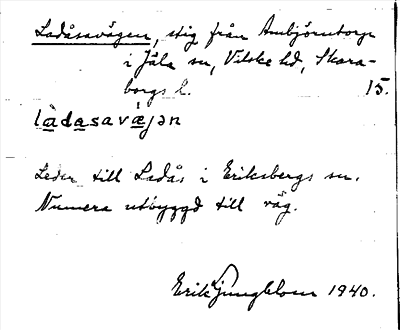 Ladåsavägen, stig från Ambjörntorp
i Jäla sn, Vilske hd, Skara-
borgs l. 15.
ladasavæjən
Leder till Ladås i Eriksbergs sn.
Numera utbyggd till väg.
Erik Ljungblom 1940.